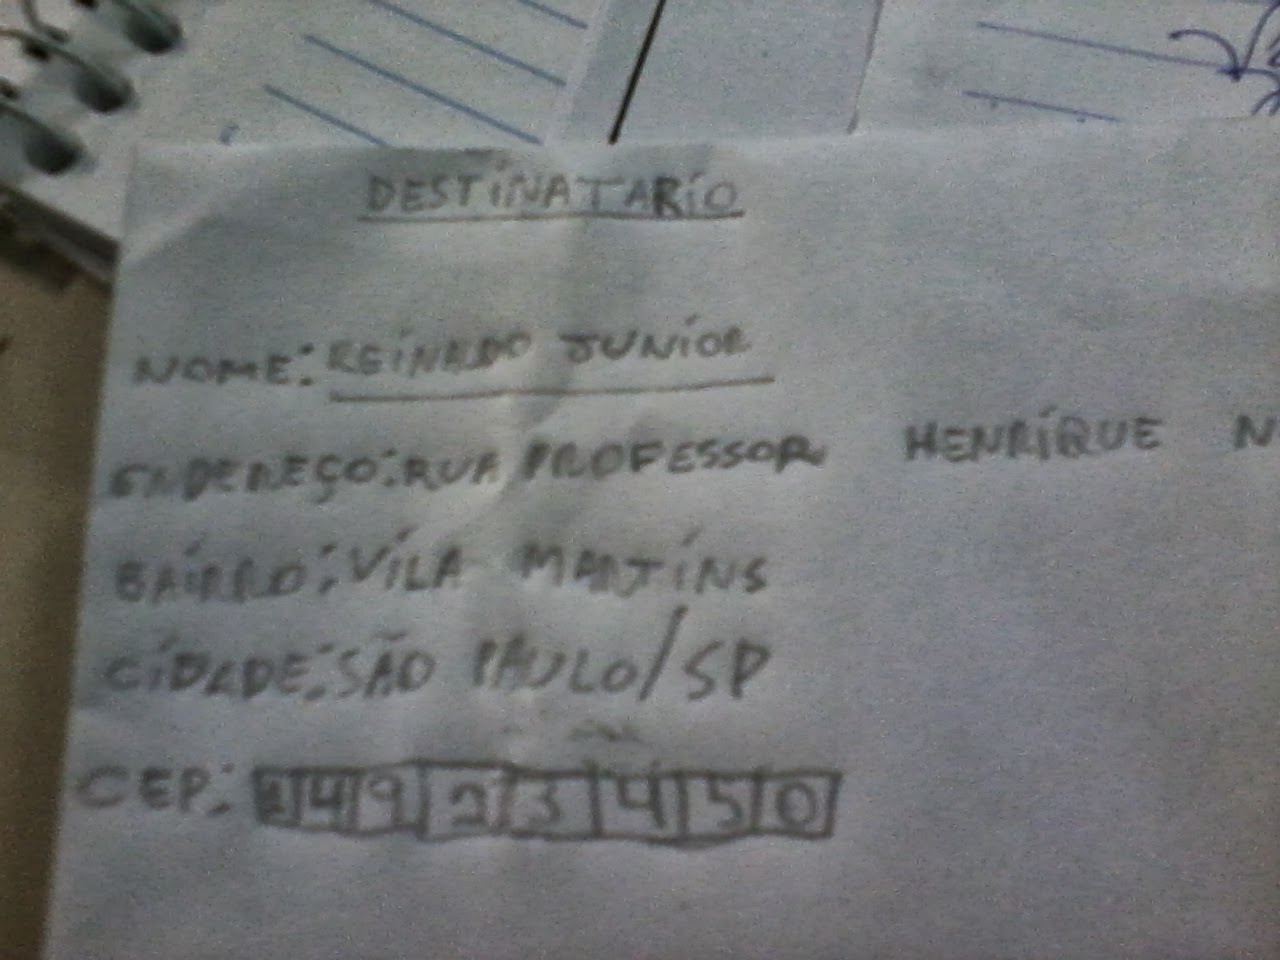 DESTINATARIO
NOME: REINADO JUNIOR
ENDEREÇO: RUA PROFESSOR HENRIQUE N
BAIRRO: VILA MARTINS
CIDADE: SÃO PAULO/SP
CEP: 4923450